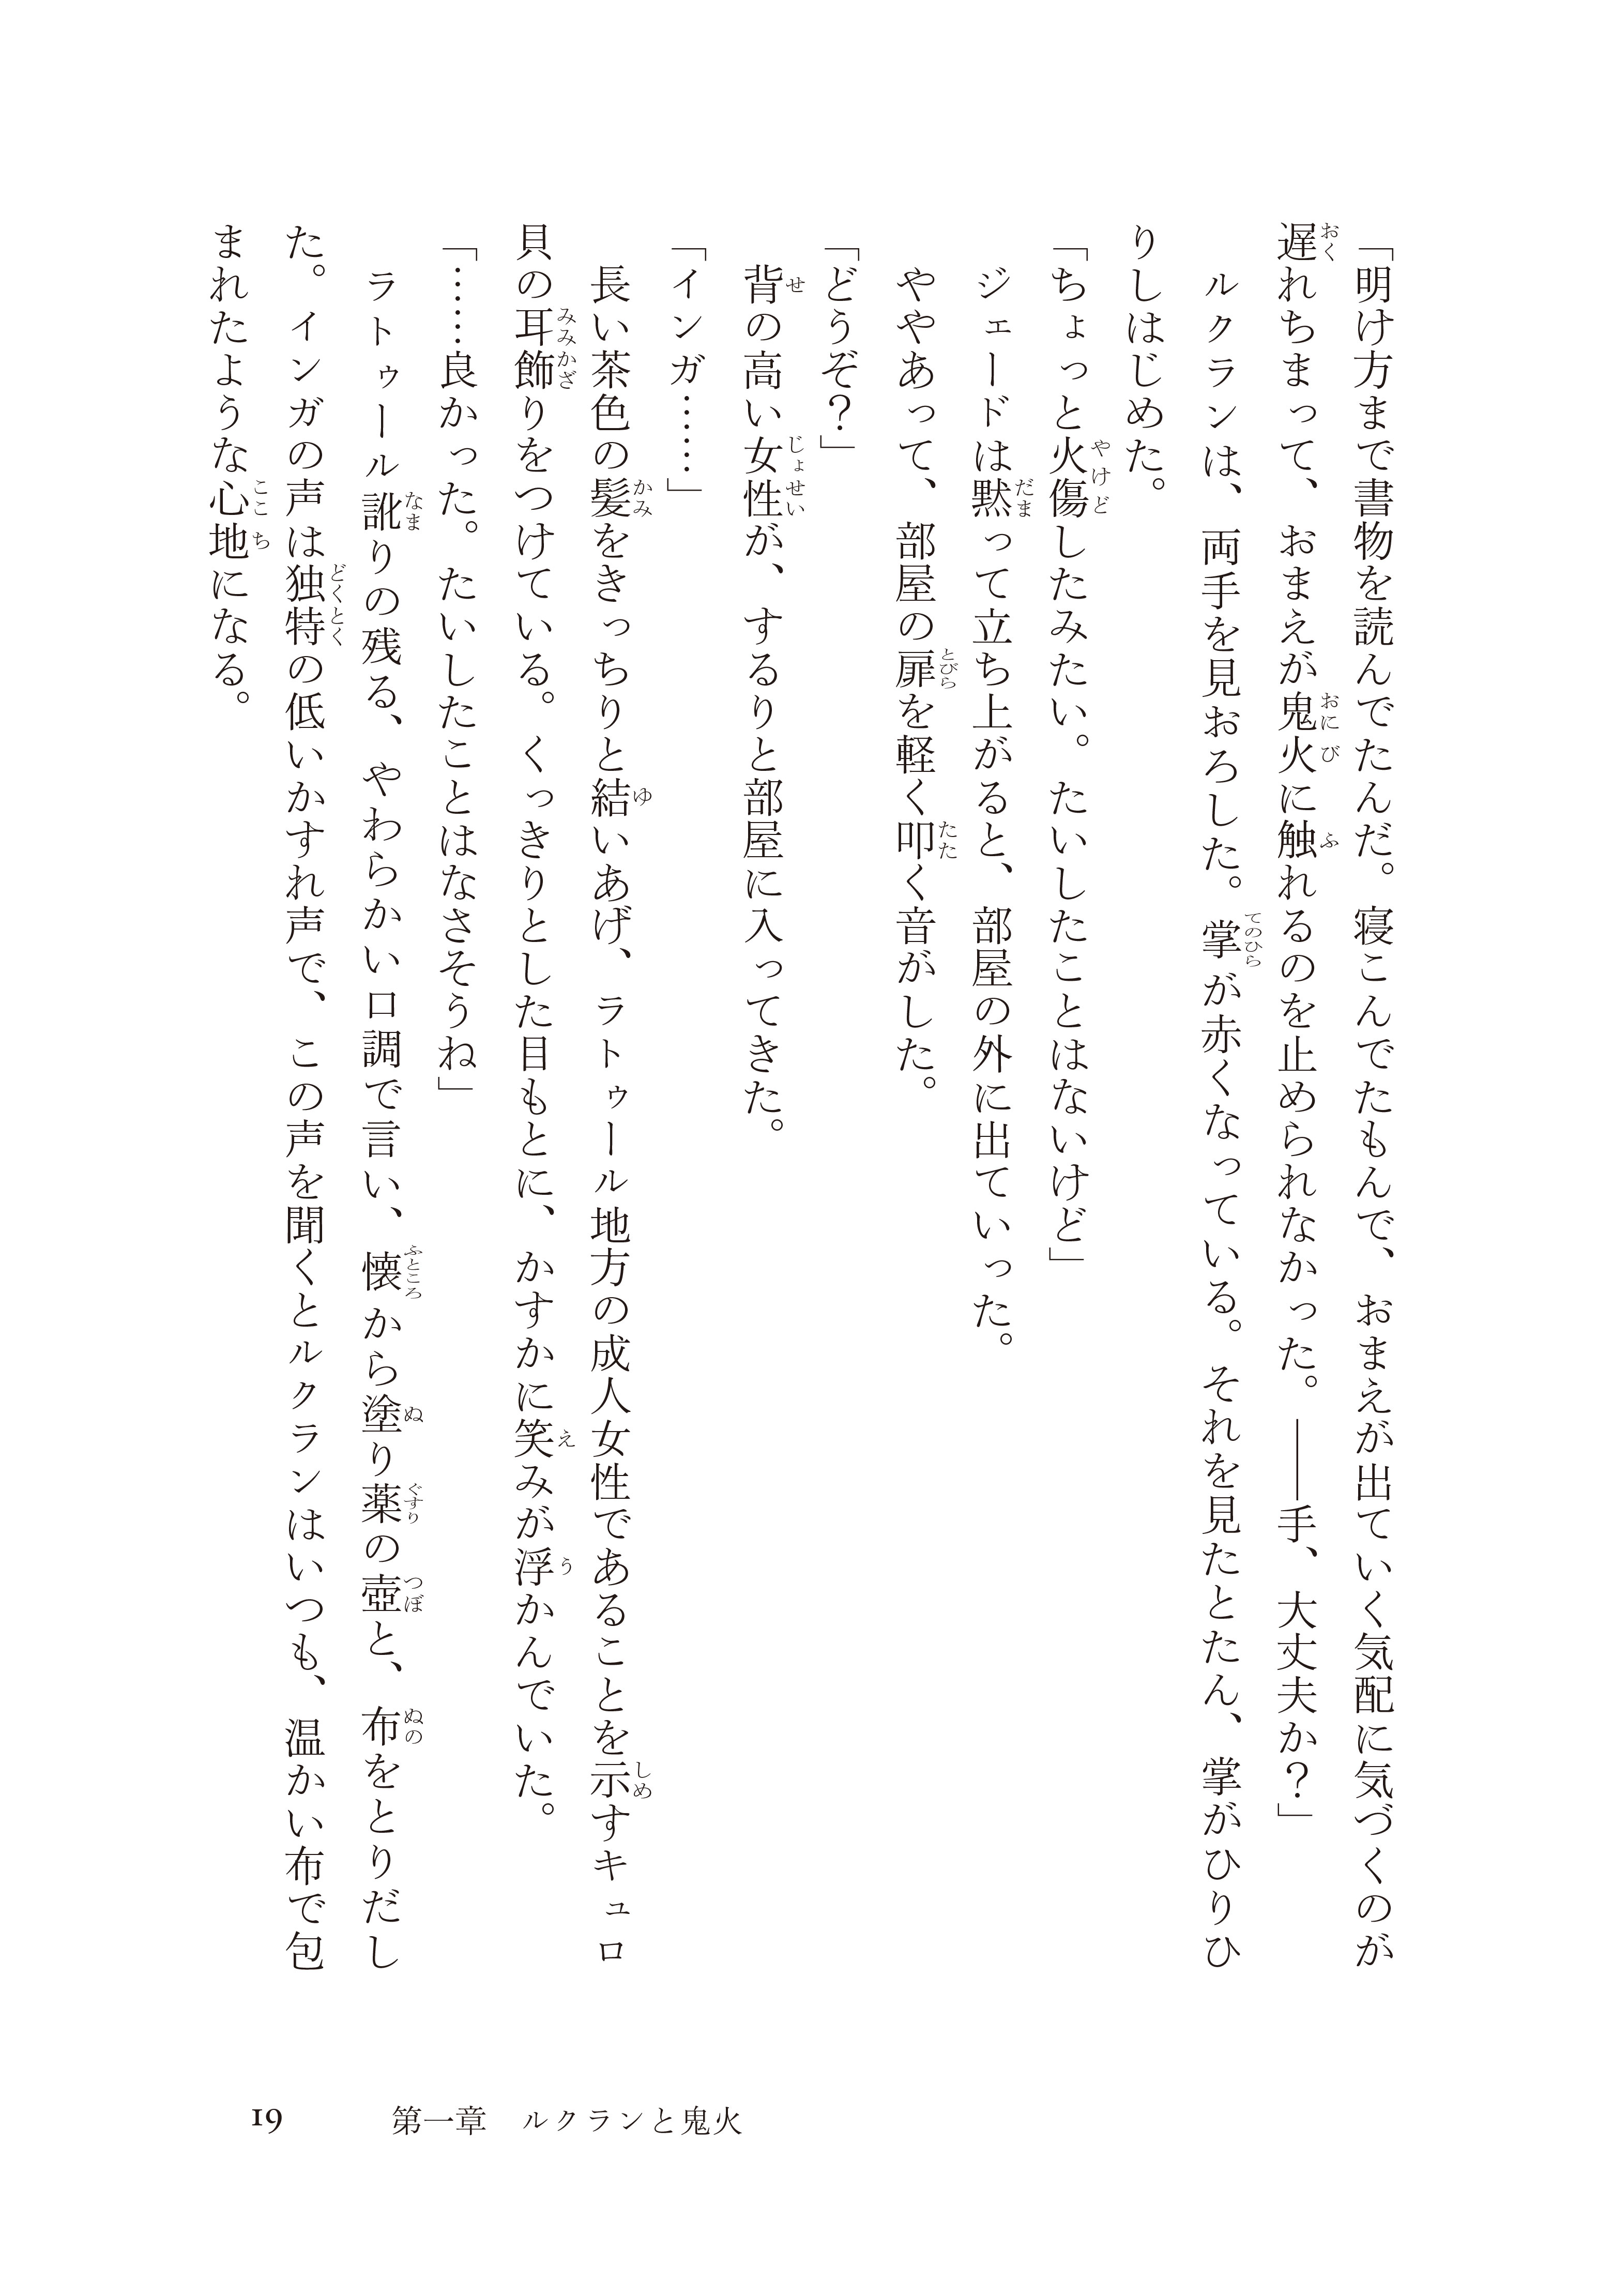 「明け方まで書物を読んでたんだ。寝こんでたもんで、おまえが出ていく気配に気づくのが
遅れちまって、おまえが鬼火に触れるのを止められなかった。――手、大丈夫か？」
　ルクランは、両手を見おろした。掌が赤くなっている。それを見たとたん、掌がひりひ
りしはじめた。
「ちょっと火傷したみたい。たいしたことはないけど」
　ジェードは黙って立ち上がると、部屋の外に出ていった。
　ややあって、部屋の扉を軽く叩く音がした。
「どうぞ？」
　背の高い女性が、するりと部屋に入ってきた。
「インガ……」
　長い茶色の髪をきっちりと結いあげ、ラトゥール地方の成人女性であることを示すキュロ
貝の耳飾りをつけている。くっきりとした目もとに、かすかに笑みが浮かんでいた。
「……良かった。たいしたことはなさそうね」
　ラトゥール訛りの残る、やわらかい口調で言い、懐から塗り薬の壺と、布をとりだし
た。インガの声は独特の低いかすれ声で、この声を聞くとルクランはいつも、温かい布で包
まれたような心地になる。
19　第一章　ルクランと鬼火